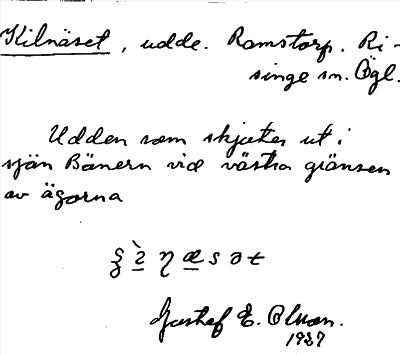 Kilnäset, udde. Ramstorp. Ri-
singe sn. Ögl.
Udden som skjuter ut i
sjön Bönern vid västra gränsen
av ägorna
Gustaf E. Olsson.
1937